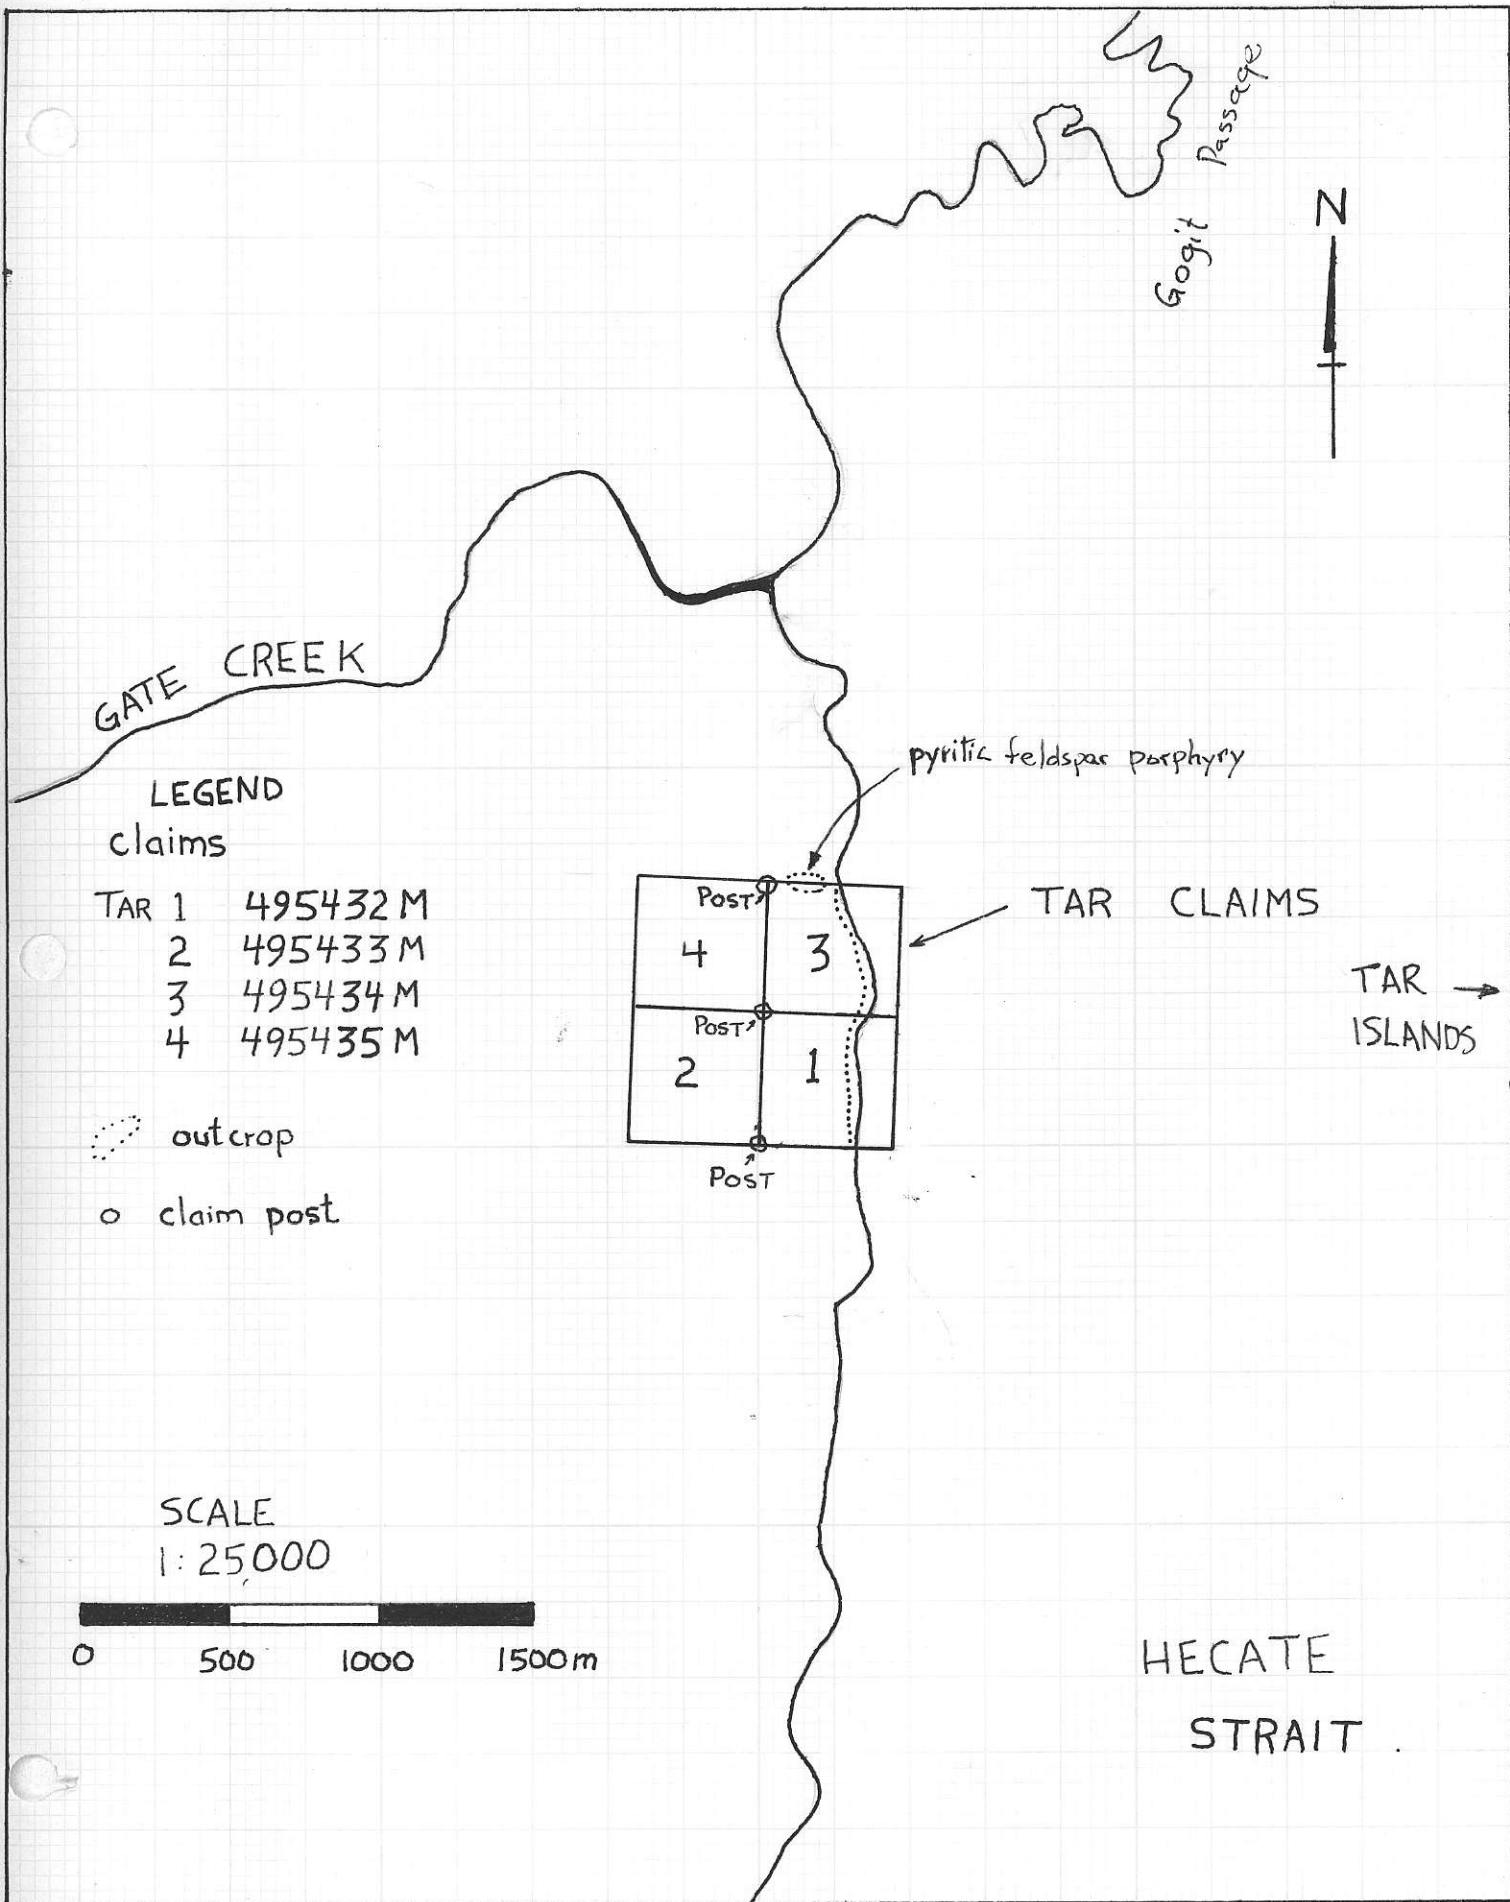 Gogit Passage
N
GATE CREEK
pyritic feldspar porphyry
LEGEND
claims
TAR 1 495432M
2 495433M
3 495434M
4 495435M
outcrop
claim post
POST
4
3
POST
2
1
POST
TAR CLAIMS
TAR
ISLANDS
SCALE
1:25,000
0 500 1000 1500m
HECATE
STRAIT